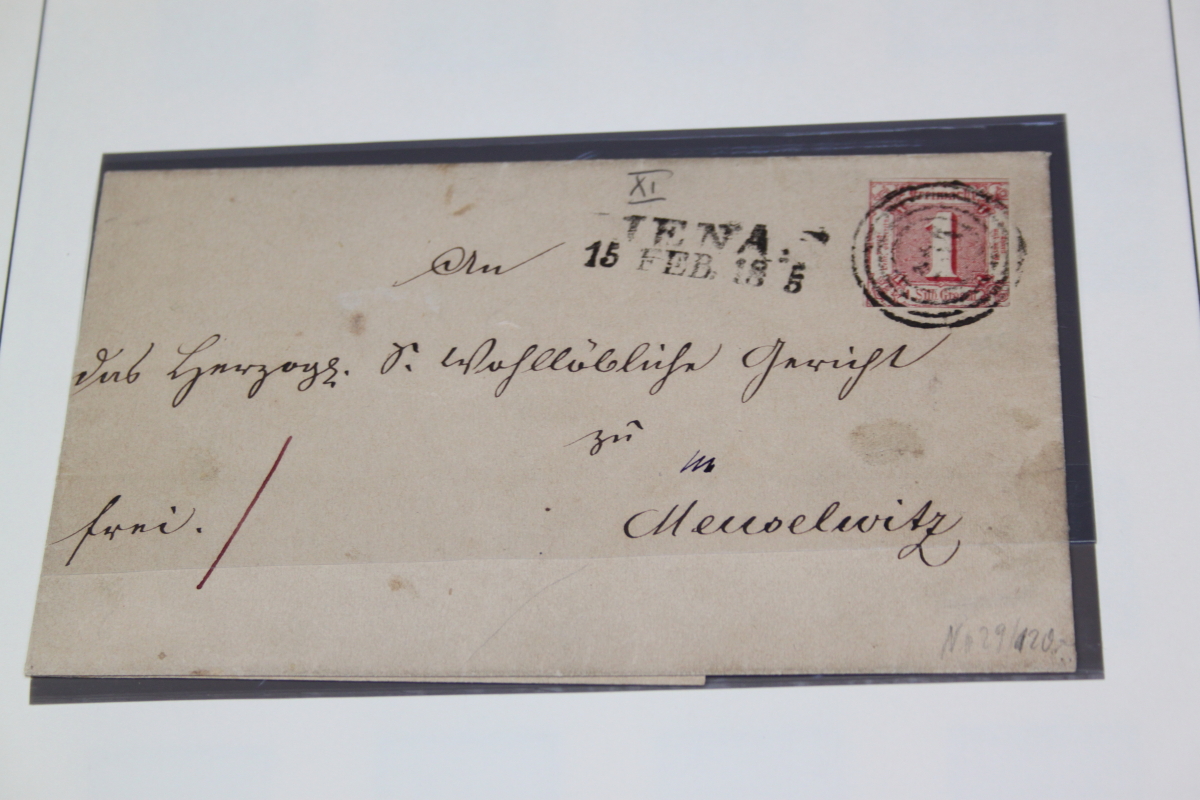 XI
JENA.
15 FEB. 18 5
1
An
das Herzogl. S. Wohllöbliche Gericht
zu
frei.
Meuselwitz
No 29/120,-